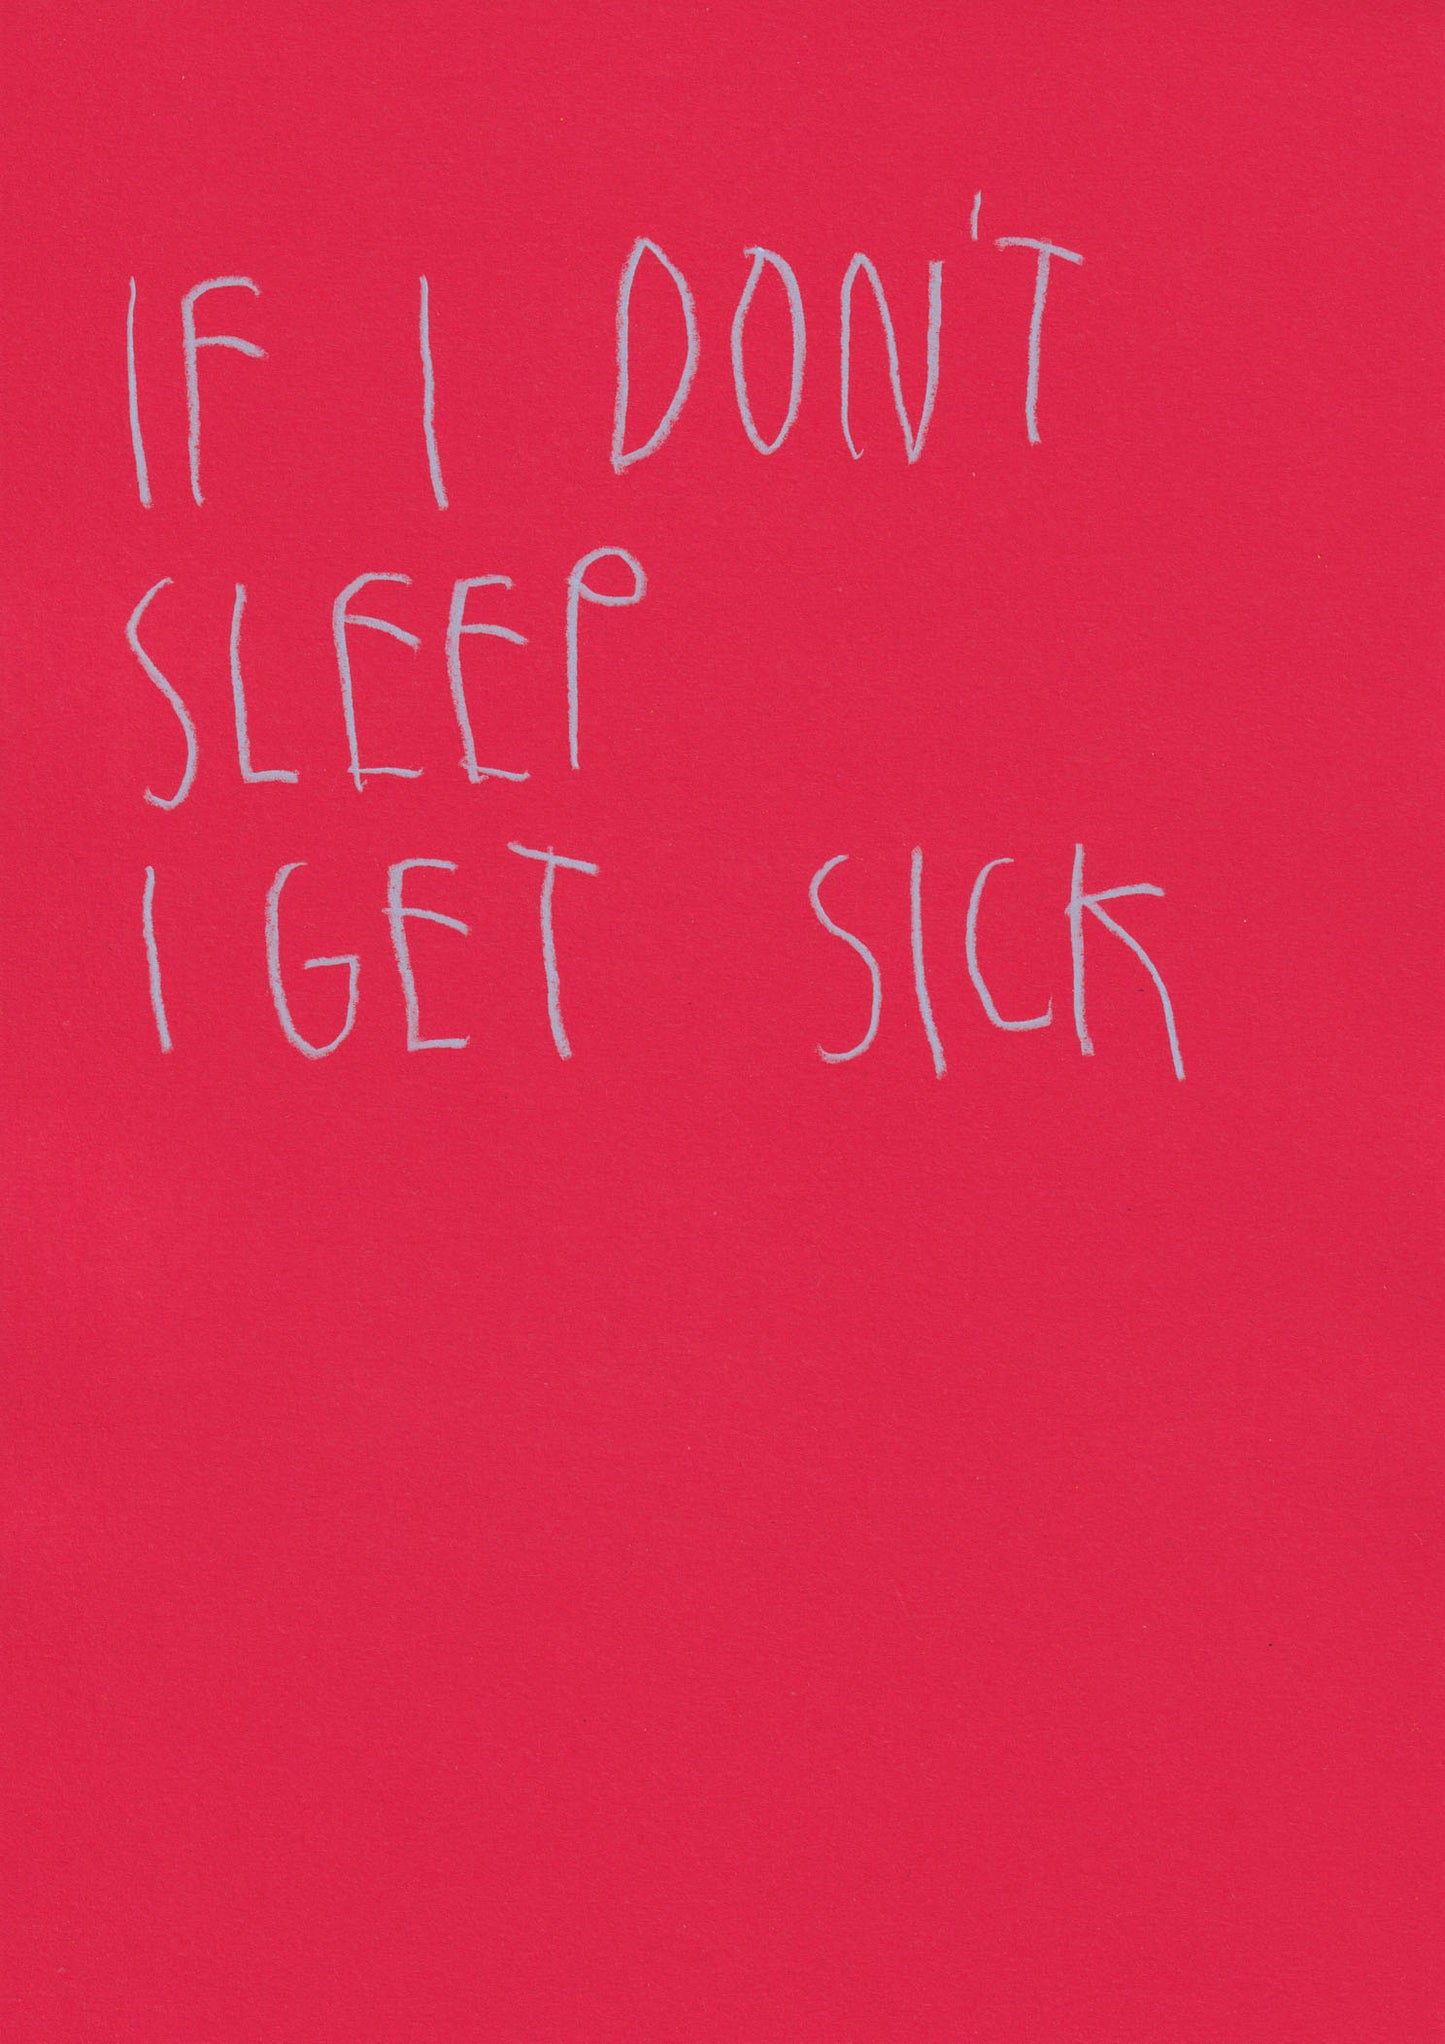 IF I DON'T
SLEEP
I GET SICK